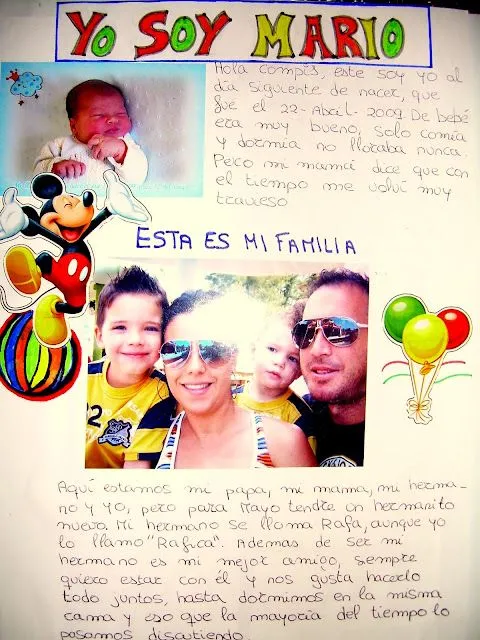 YO SOY MARIO
Hola compis, este soy yo al
día siguiente de nacer, que
fue el 22-Abril-2009 De bebé
era muy bueno, solo comía
y dormia no lloraba nunca.
Pero mi mamá dice que con
el tiempo me volví muy
travieso
ESTA ES MI FAMILIA
2
Aquí estamos mi papa, mi mama, mi herma-
no y yo, pero para Mayo tendre un hermanito
nuevo. Mi hermano se llama Rafa, aunque yo
lo llamo "Rafica". Ademas de ser mi
hermano es mi mejor amigo, siempre
quiero estar con él y nos gusta hacerlo
todo juntos, hasta dormimos en la misma
cama y eso que la mayoria del tiempo lo
pasamos discutiendo.